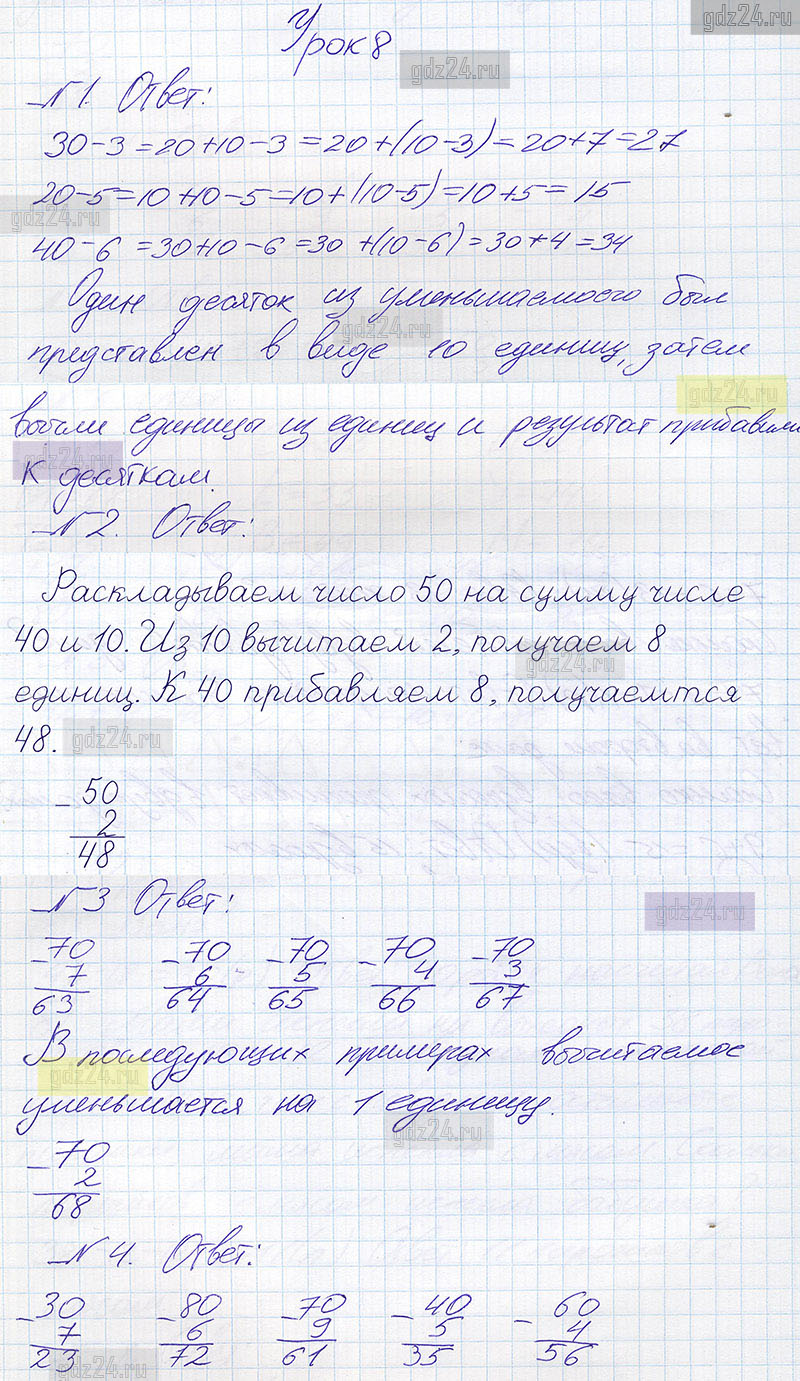 gdz24.ru
Урок 8
gdz24.ru
№1. Ответ:
30-3=20+10-3=20+(10-3)=20+7=27
20-5=10+10-5=10+(10-5)=10+5=15
gdz24.ru
40-6=30+10-6=30+(10-6)=30+4=34
Один десяток из уменьшаемоего был
gdz24.ru
представлен в виде 10 единиц, затем
gdz24.ru
вычли единицы из единиц и результат прибавили
gdz24.ru
к десяткам.
№2. Ответ:
Раскладываем число 50 на сумму числе
40 и 10. Из 10 вычитаем 2, получаем 8
gdz24.ru
единиц. К 40 прибавляем 8, получаемтся
48.
gdz24.ru
- 50
2
48
№3 Ответ:
gdz24.ru
-70 -70 -70 -70 -70
7 6 5 4 3
63 64 65 66 67
В последующих примерах вычитаемое
gdz24.ru
уменьшается на 1 единицу.
gdz24.ru
-70
2
68
№4. Ответ:
-30 -80 -70 -40 -60
7 6 9 5 4
23 72 61 35 56
gdz24.ru